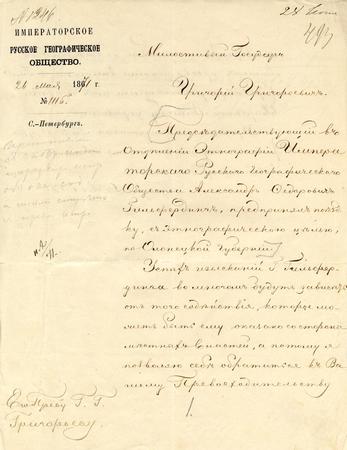 № 1246
24 Июня
493
ИМПЕРАТОРСКОЕ
РУССКОЕ ГЕОГРАФИЧЕСКОЕ
ОБЩЕСТВО.
26 Мая 1871 г.
№ 1116.
С.-Петербургъ.
Милостивый Государь
Григорій Григорьевичъ.
Предсѣдательствующій въ
Отдѣленіи Этнографіи Импера
торскаго Русскаго Географическаго
Общества Александръ Ѳедоровичъ
Гильфердингъ, предпринялъ поѣзд
ку, съ этнографическою цѣлью,
по Олонецкой Губерніи.
Успѣхъ изысканій Г. Гильфер
динга во многомъ будутъ зависѣть
отъ того содѣйствія, которое мо
жетъ быть ему оказано со стороны
мѣстныхъ властей, а потому я
позволяю себѣ обратиться къ Ва
шему Превосходительству
Его Прев. Г. Г.
Григорьеву.